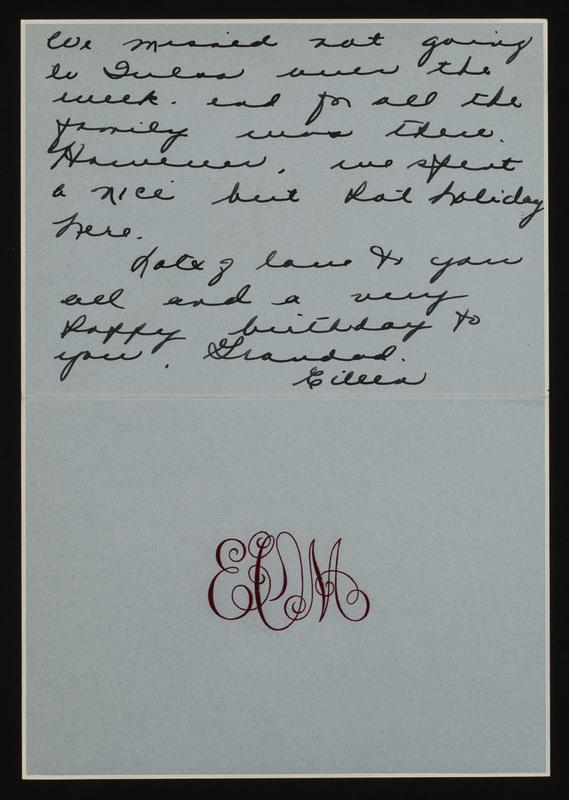 We missed not going
to Tulsa over the
week. end for all the
family was there.
However, we spent
a nice but hot holiday
here.
Lots of love to you
all and a very
happy birthday to
you, Grandad.
Eileen
EPM